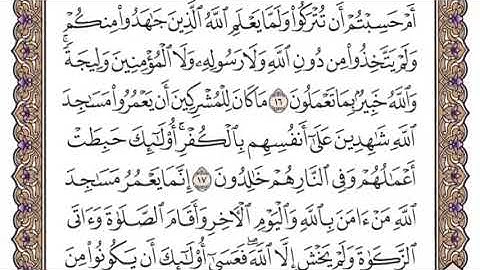 أَمْ حَسِبْتُمْ أَن تُتْرَكُوا۟ وَلَمَّا يَعْلَمِ ٱللَّهُ ٱلَّذِينَ جَٰهَدُوا۟ مِنكُمْ
وَلَمْ يَتَّخِذُوا۟ مِن دُونِ ٱللَّهِ وَلَا رَسُولِهِۦ وَلَا ٱلْمُؤْمِنِينَ وَلِيجَةً ۚ
وَٱللَّهُ خَبِيرٌۢ بِمَا تَعْمَلُونَ ١٦ مَا كَانَ لِلْمُشْرِكِينَ أَن يَعْمُرُوا۟ مَسَٰجِدَ
ٱللَّهِ شَٰهِدِينَ عَلَىٰٓ أَنفُسِهِم بِٱلْكُفْرِ ۚ أُو۟لَٰٓئِكَ حَبِطَتْ
أَعْمَٰلُهُمْ وَفِى ٱلنَّارِ هُمْ خَٰلِدُونَ ١٧ إِنَّمَا يَعْمُرُ مَسَٰجِدَ
ٱللَّهِ مَنْ ءَامَنَ بِٱللَّهِ وَٱلْيَوْمِ ٱلْءَاخِرِ وَأَقَامَ ٱلصَّلَوٰةَ وَءَاتَى
ٱلزَّكَوٰةَ وَلَمْ يَخْشَ إِلَّا ٱللَّهَ ۖ فَعَسَىٰٓ أُو۟لَٰٓئِكَ أَن يَكُونُوا۟ مِنَ